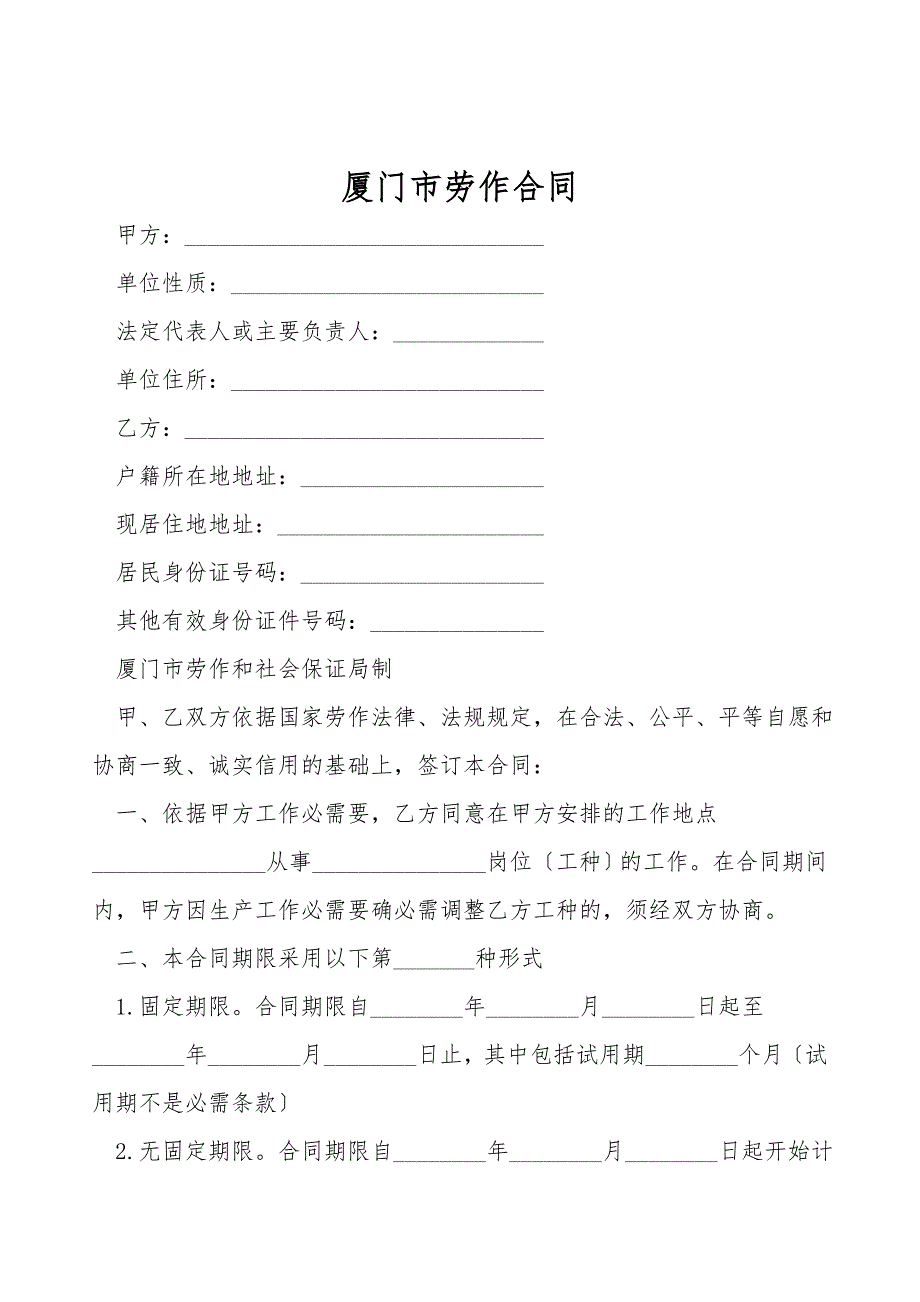 厦门市劳作合同
甲方：_______________________________
单位性质：___________________________
法定代表人或主要负责人：_____________
单位住所：___________________________
乙方：_______________________________
户籍所在地地址：_____________________
现居住地地址：_______________________
居民身份证号码：_____________________
其他有效身份证件号码：_______________
厦门市劳作和社会保证局制
甲、乙双方依据国家劳作法律、法规规定，在合法、公平、平等自愿和
协商一致、诚实信用的基础上，签订本合同：
一、依据甲方工作必需要，乙方同意在甲方安排的工作地点
_______________从事_______________岗位〔工种〕的工作。在合同期间
内，甲方因生产工作必需要确必需调整乙方工种的，须经双方协商。
二、本合同期限采用以下第_______种形式
1.固定期限。合同期限自________年________月________日起至
________年________月________日止，其中包括试用期________个月〔试
用期不是必需条款〕
2.无固定期限。合同期限自________年________月________日起开始计